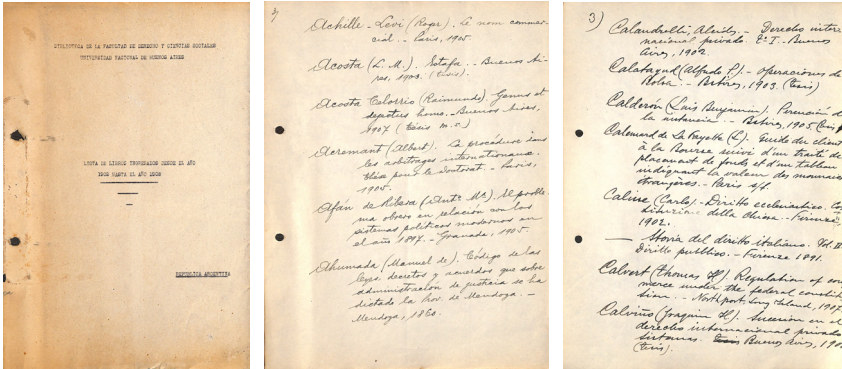 BIBLIOTECA DE LA FACULTAD DE DERECHO Y CIENCIAS SOCIALES
UNIVERSIDAD NACIONAL DE BUENOS AIRES
LISTA DE LIBROS INGRESADOS DESDE EL AÑO
HASTA EL AÑO
REPUBLICA ARGENTINA
Achille-Levi (Roger). Le nom commer-
cial. - Paris, 1905.
Acosta (L. M.). Estafa. - Buenos Ai-
res, 1903. (Tésis).
Acosta Celorrio (Raimundo). Genus et
homo. - Buenos Aires,
1907 (Tésis m.s.)
Acremant (Albert). La procédure dans
les arbitrages internationaux.
Thèse pour le doctorat. - Paris,
1905.
Afán de Ribera (Antº Mª). El proble-
ma obrero en relación con los
sistemas políticos modernos en
el año 1897. - Granada, 1905.
Ahumada (Manuel de). Código de las
leyes, decretos y acuerdos que sobre
administración de justicia se ha
dictado la Prov. de Mendoza. -
Mendoza, 1860.
3)
Calandrelli, Alcides. - Derecho inter
nacional privado. Tº I. - Buenos
Aires, 1902.
Calatayud (Alfredo P.) - Operaciones de
Bolsa. - Bs Aires, 1903. (Tésis)
Calderón (Luis Benjamín). Perención de
la instancia. - Bs Aires, 1905
Calemard de La Fayette (L). Guide du client
à la Bourse suivi d'un traité de
placement de fonds et d'un tableau
indiquant la valeur des monnaies
étrangères. - Paris s/f.
Calisse (Carlo). - Diritto ecclesiastico. Cos
della chiesa. - Firenze
1902.
— Storia del diritto italiano. Vol. II
Diritto pubblico. - Firenze 1891.
Calvert (Thomas H) Regulation of com
merce under the federal constitu
tion. - Northport, Long Island, 1907
Calvino (Joaquin H). Sucesión en el
derecho internacional privado
Sistemas. Buenos Aires, 190
(Tésis).